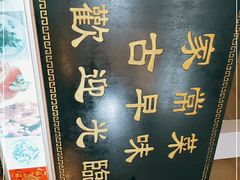 家常菜
古早味
歡迎光臨